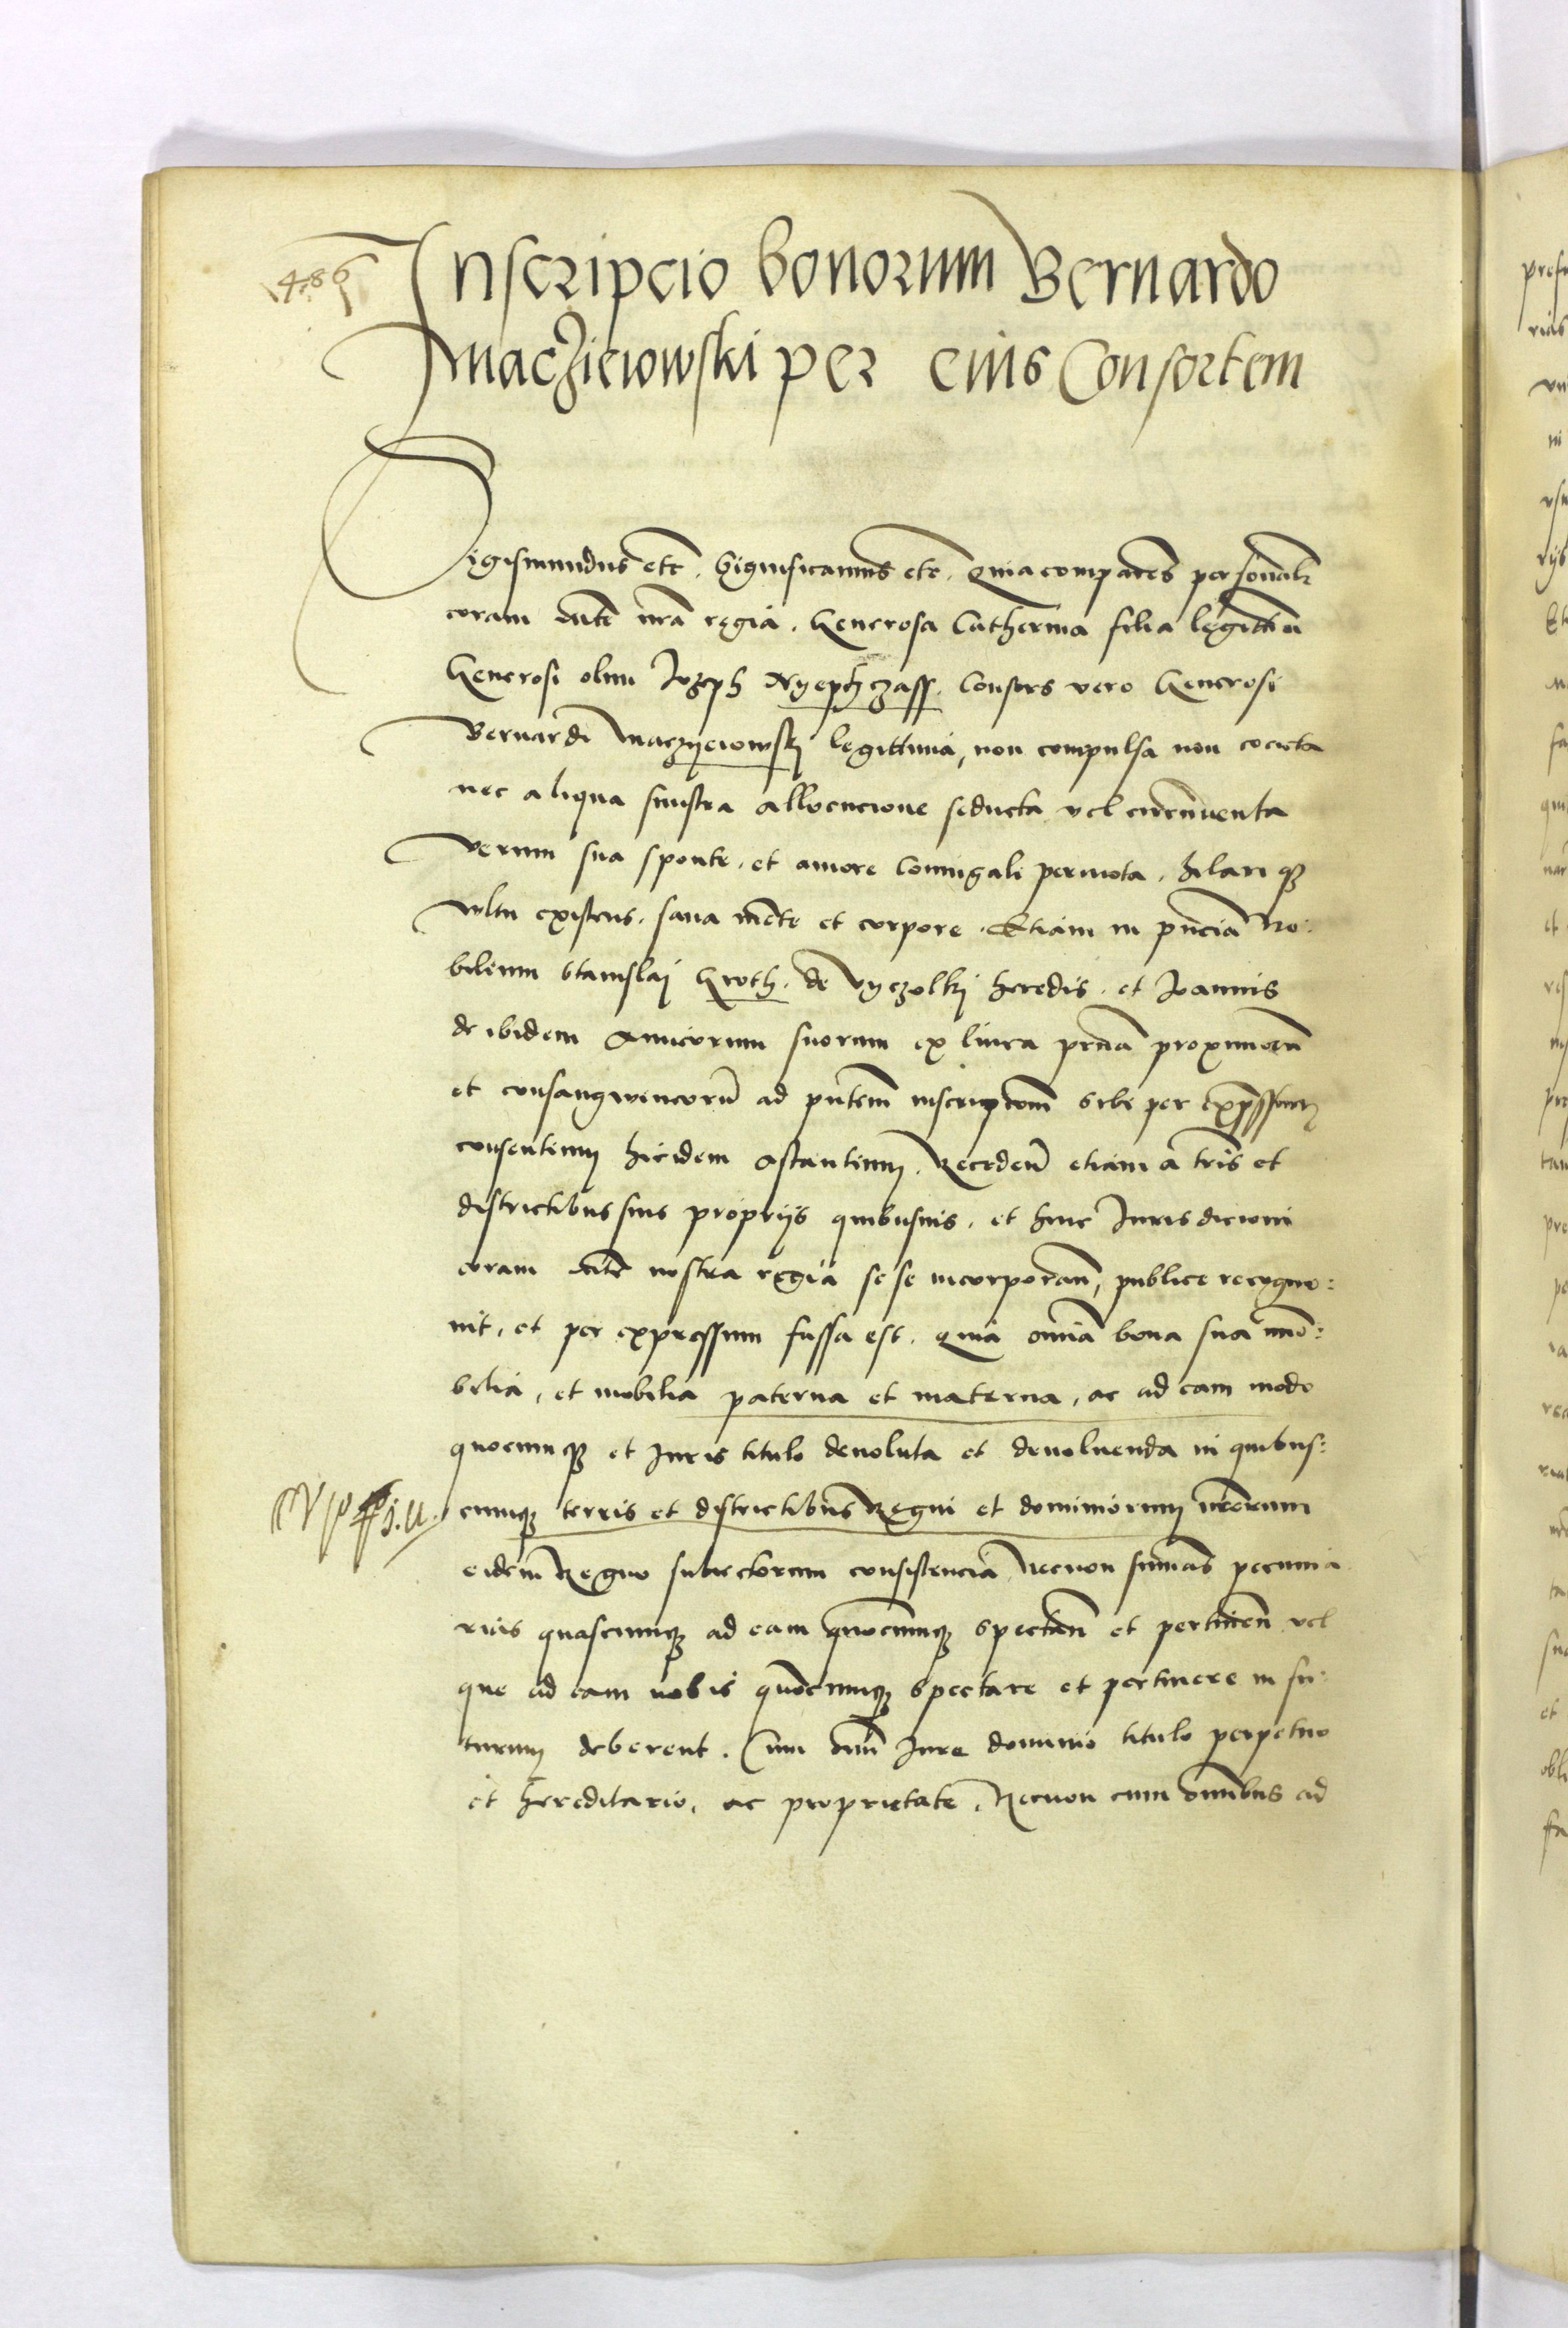 486
Inscripcio bonorum Bernardo
Macziewowski per eius Consortem
Sigismundus etc. Significamus etc. Quia comparens personalr
coram Mte nra regia. Generosa Catherina filia legittima
Generosi olim Jozeph Nyepczass. Consors vero Generosi
Bernardi Maczyeiowskj legittima, non compulsa non coacta
nec aliqua sinistra allocucione seducta vel circuuenta
Verum sua sponte. et amore Coniugali permota. hilari qz
vultu existens. sana mente et corpore. Etiam in pncia No:
bilium Stanislaj Groth. de Vyczolkj heredis. et Joannis
de ibidem Amicorum suorum ex linea prna proximorum
et consangwineorum ad pntem inscripcionem sibi per expressum
consentium hicidem astantium. Recedens etiam a tris et
districtibus suis proprijs quibusuis. et huic Jurisdicioni
coram Mte nostra regia se se incorporans, publice recogno:
uit, et per expressum fassa est. quia omnia bona sua immo:
bilia, et mobilia paterna et materna, ac ad eam modo
quocumqz et Juris titulo deuoluta et deuoluenda in quibus:
cumqz terris et districtibus Regni et dominiorum nrorum
eidem Regno subiectorum consistencia Necnon summas pecunia
rias quascumqz ad eam quocumqz spectan et pertinen vel
que ad eam nobis quocumqz spectare et pertinere in fu:
turum deberent. Cum omni Jure dominio titulo perpetuo
et hereditario, ac proprietate. Necnon cum omnibus ad